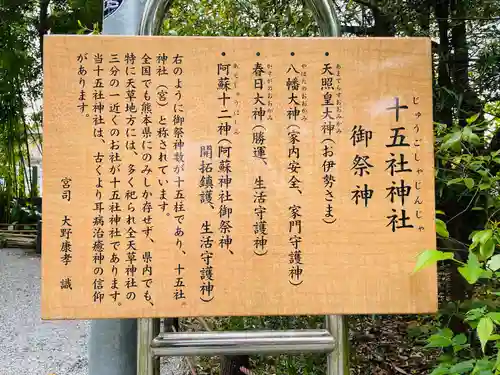 じゅうごしゃじんじゃ
十五社神社
御祭神
あまてらすおおみかみ
・天照皇大神（お伊勢さま）
やはたのおおかみ
・八幡大神（家内安全、家門守護神）
かすがのおおかみ
・春日大神（勝運、生活守護神）
あそじゅうにしん
・阿蘇十二神（阿蘇神社御祭神、
開拓鎮護、生活守護神）
右のように御祭神数が十五柱であり、十五社
神社（宮）と称されています。
全国でも熊本県にのみしか存せず、県内でも、
特に天草地方には、多く祀られ全天草神社の
三分の一近くのお社が十五社神社であります。
当十五社神社は、古くより耳病治癒神の信仰
があります。
宮司　大野康孝　識